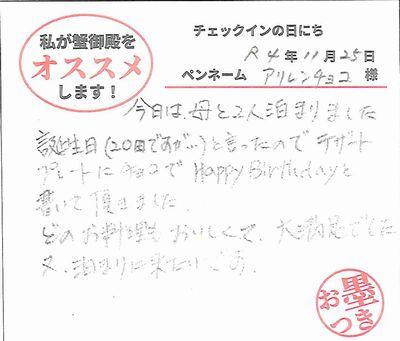 私が蟹御殿を
オススメ
します!
チェックインの日にち
R4年11月25日
ペンネーム アリレンチョコ 様
今日は、母と2人泊まりました
誕生日(20日ですが…)と言ったので デザート
プレートにチョコでHappy Birthdayと
書いて頂きました。
どのお料理もおいしくて、大満足でした
又、泊まりに来たいです。
お墨つき